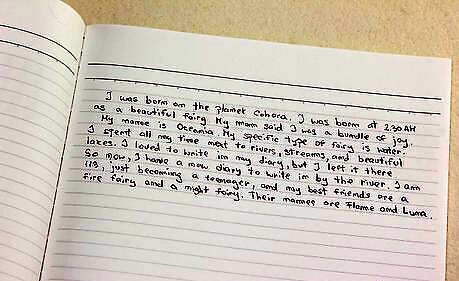 I was born on the planet Cohora. I was born at 2:30 AM
as a beautiful fairy My mom said I was a bundle of joy.
My name is Oceania My specific type of fairy is water.
I spent all my time next to rivers, streams, and beautiful
lakes. I loved to write in my diary, but I left it there
So now, I have a new diary to write in by the river. I am
113, just becoming a teenager, and my best friends are a
fire fairy and a night fairy. Their names are Flame and Luna.